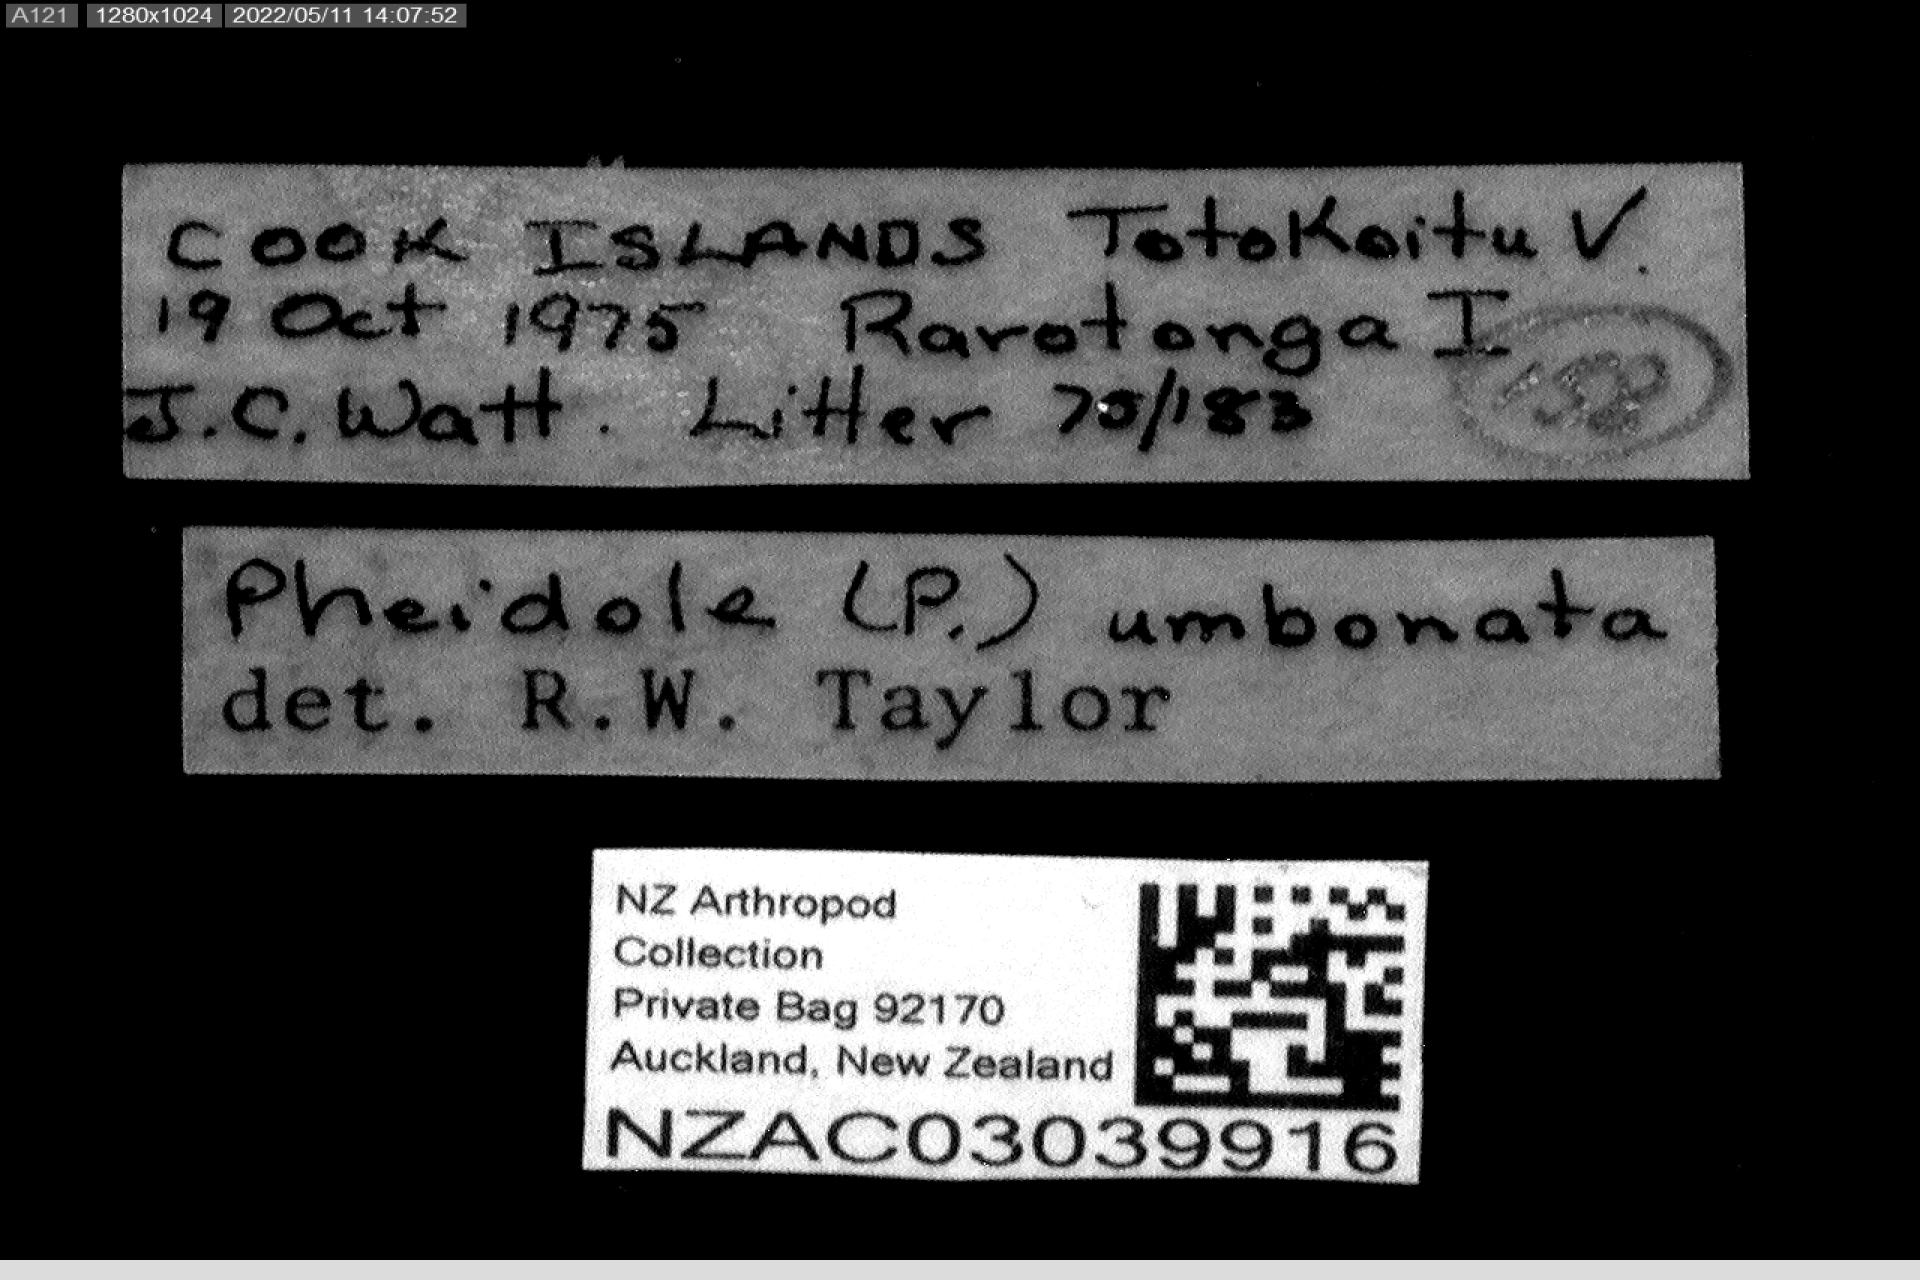 A121 1280x1024 2022/05/11 14:07:52
COOK ISLANDS Totokoitu V.
19 Oct 1975 Rarotonga I
J.C. Watt. Litter 75/183
Pheidole (P.) umbonata
det. R.W. Taylor
NZ Arthropod
Collection
Private Bag 92170
Auckland, New Zealand
NZAC03039916